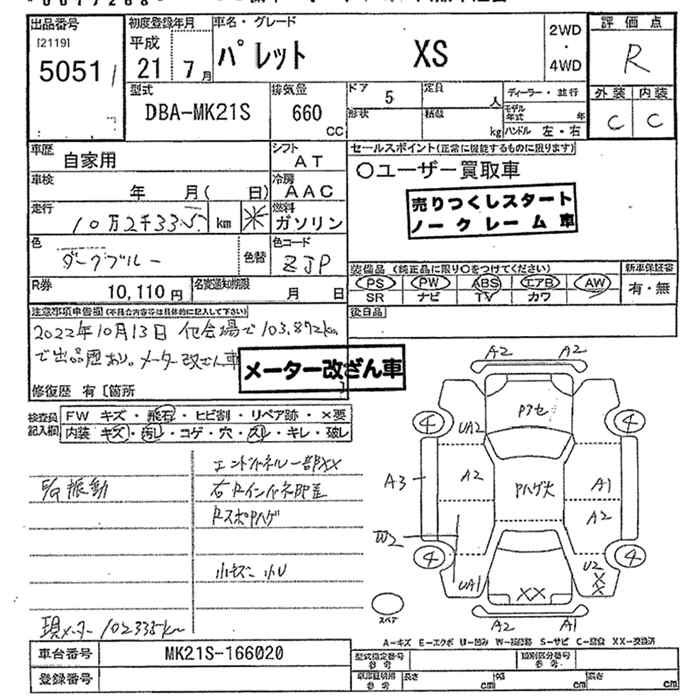 出品番号
[2119]
5051
初度登録年月
平成 21年 7月
車名・グレード
パレット XS
2WD
・
4WD
評価点
R
型式
DBA-MK21S
排気量
660
CC
ドア 5
形状
定員 人
積載 kg
ディーラー・並行
モデル年式 年
ハンドル 左・右
外装 内装
C C
車歴
自家用
シフト
AT
セールスポイント(正常に機能するものに限ります)
○ユーザー買取車
売りつくしスタート
ノークレーム車
車検
年 月( 日)
冷房
AAC
走行
10万2千335 km ※
燃料
ガソリン
色
ダークブルー
色替
色コード
ZJP
装備品 (純正品に限り○をつけてください)
PS PW ABS エアB AW
SR ナビ TV カワ
新車保証書
有・無
R券
10,110円
名変通知期限
月 日
後日品
注意事項申告欄(不具合内容等は具体的に記入して下さい)
2022年10月13日 他会場で103,872km
で出品歴あり。メーター改ざん車
メーター改ざん車
修復歴 有 [箇所
検査員記入欄
FW キズ・飛石・ヒビ割・リペア跡・×要
内装 キズ・汚レ・コゲ・穴・スレ・キレ・破レ
エンドパネル一部XX
右Rインパネ部歪
RスポPハゲ
小キズ小U
現メーター102335km
A2 A2
4 4
Pアセ
UA2
A3
A2
Pハゲ大
A1
A2
W2
4 4
UA1
XX
U2
XX
A2 A1
スペア
A-キズ E-エクボ U-凹み W-補修跡 S-サビ C-腐食 XX-交換済
車台番号
MK21S-166020
登録番号
型式指定番号
参考
類別区分番号
参考
車庫証明用
参考
長さ cm
幅 cm
高さ cm